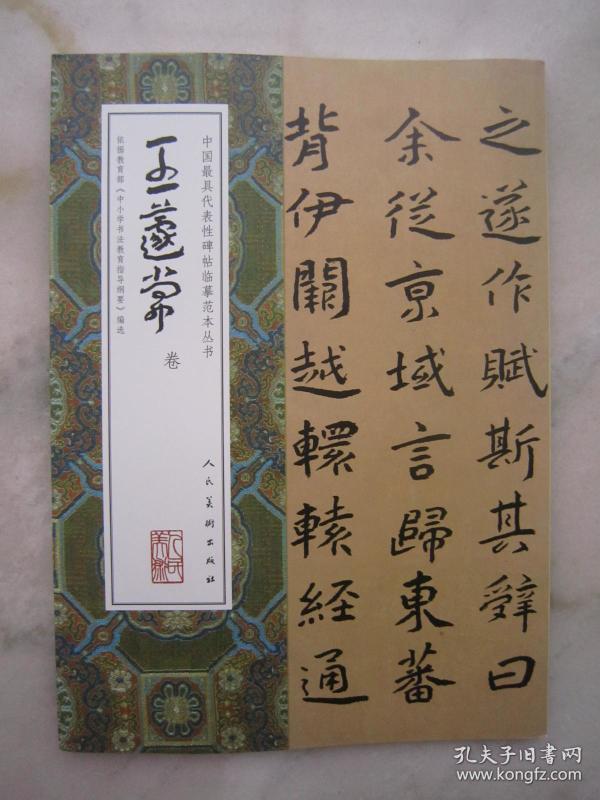 之遂作賦斯其辭曰
余從京域言歸東蕃
背伊闕越轘轅經通
中国最具代表性碑帖临摹范本丛书
王蘧常
卷
依据教育部《中小学书法教育指导纲要》编选
人民美術出版社
人民
美術
孔夫子旧书网
www.kongfz.com